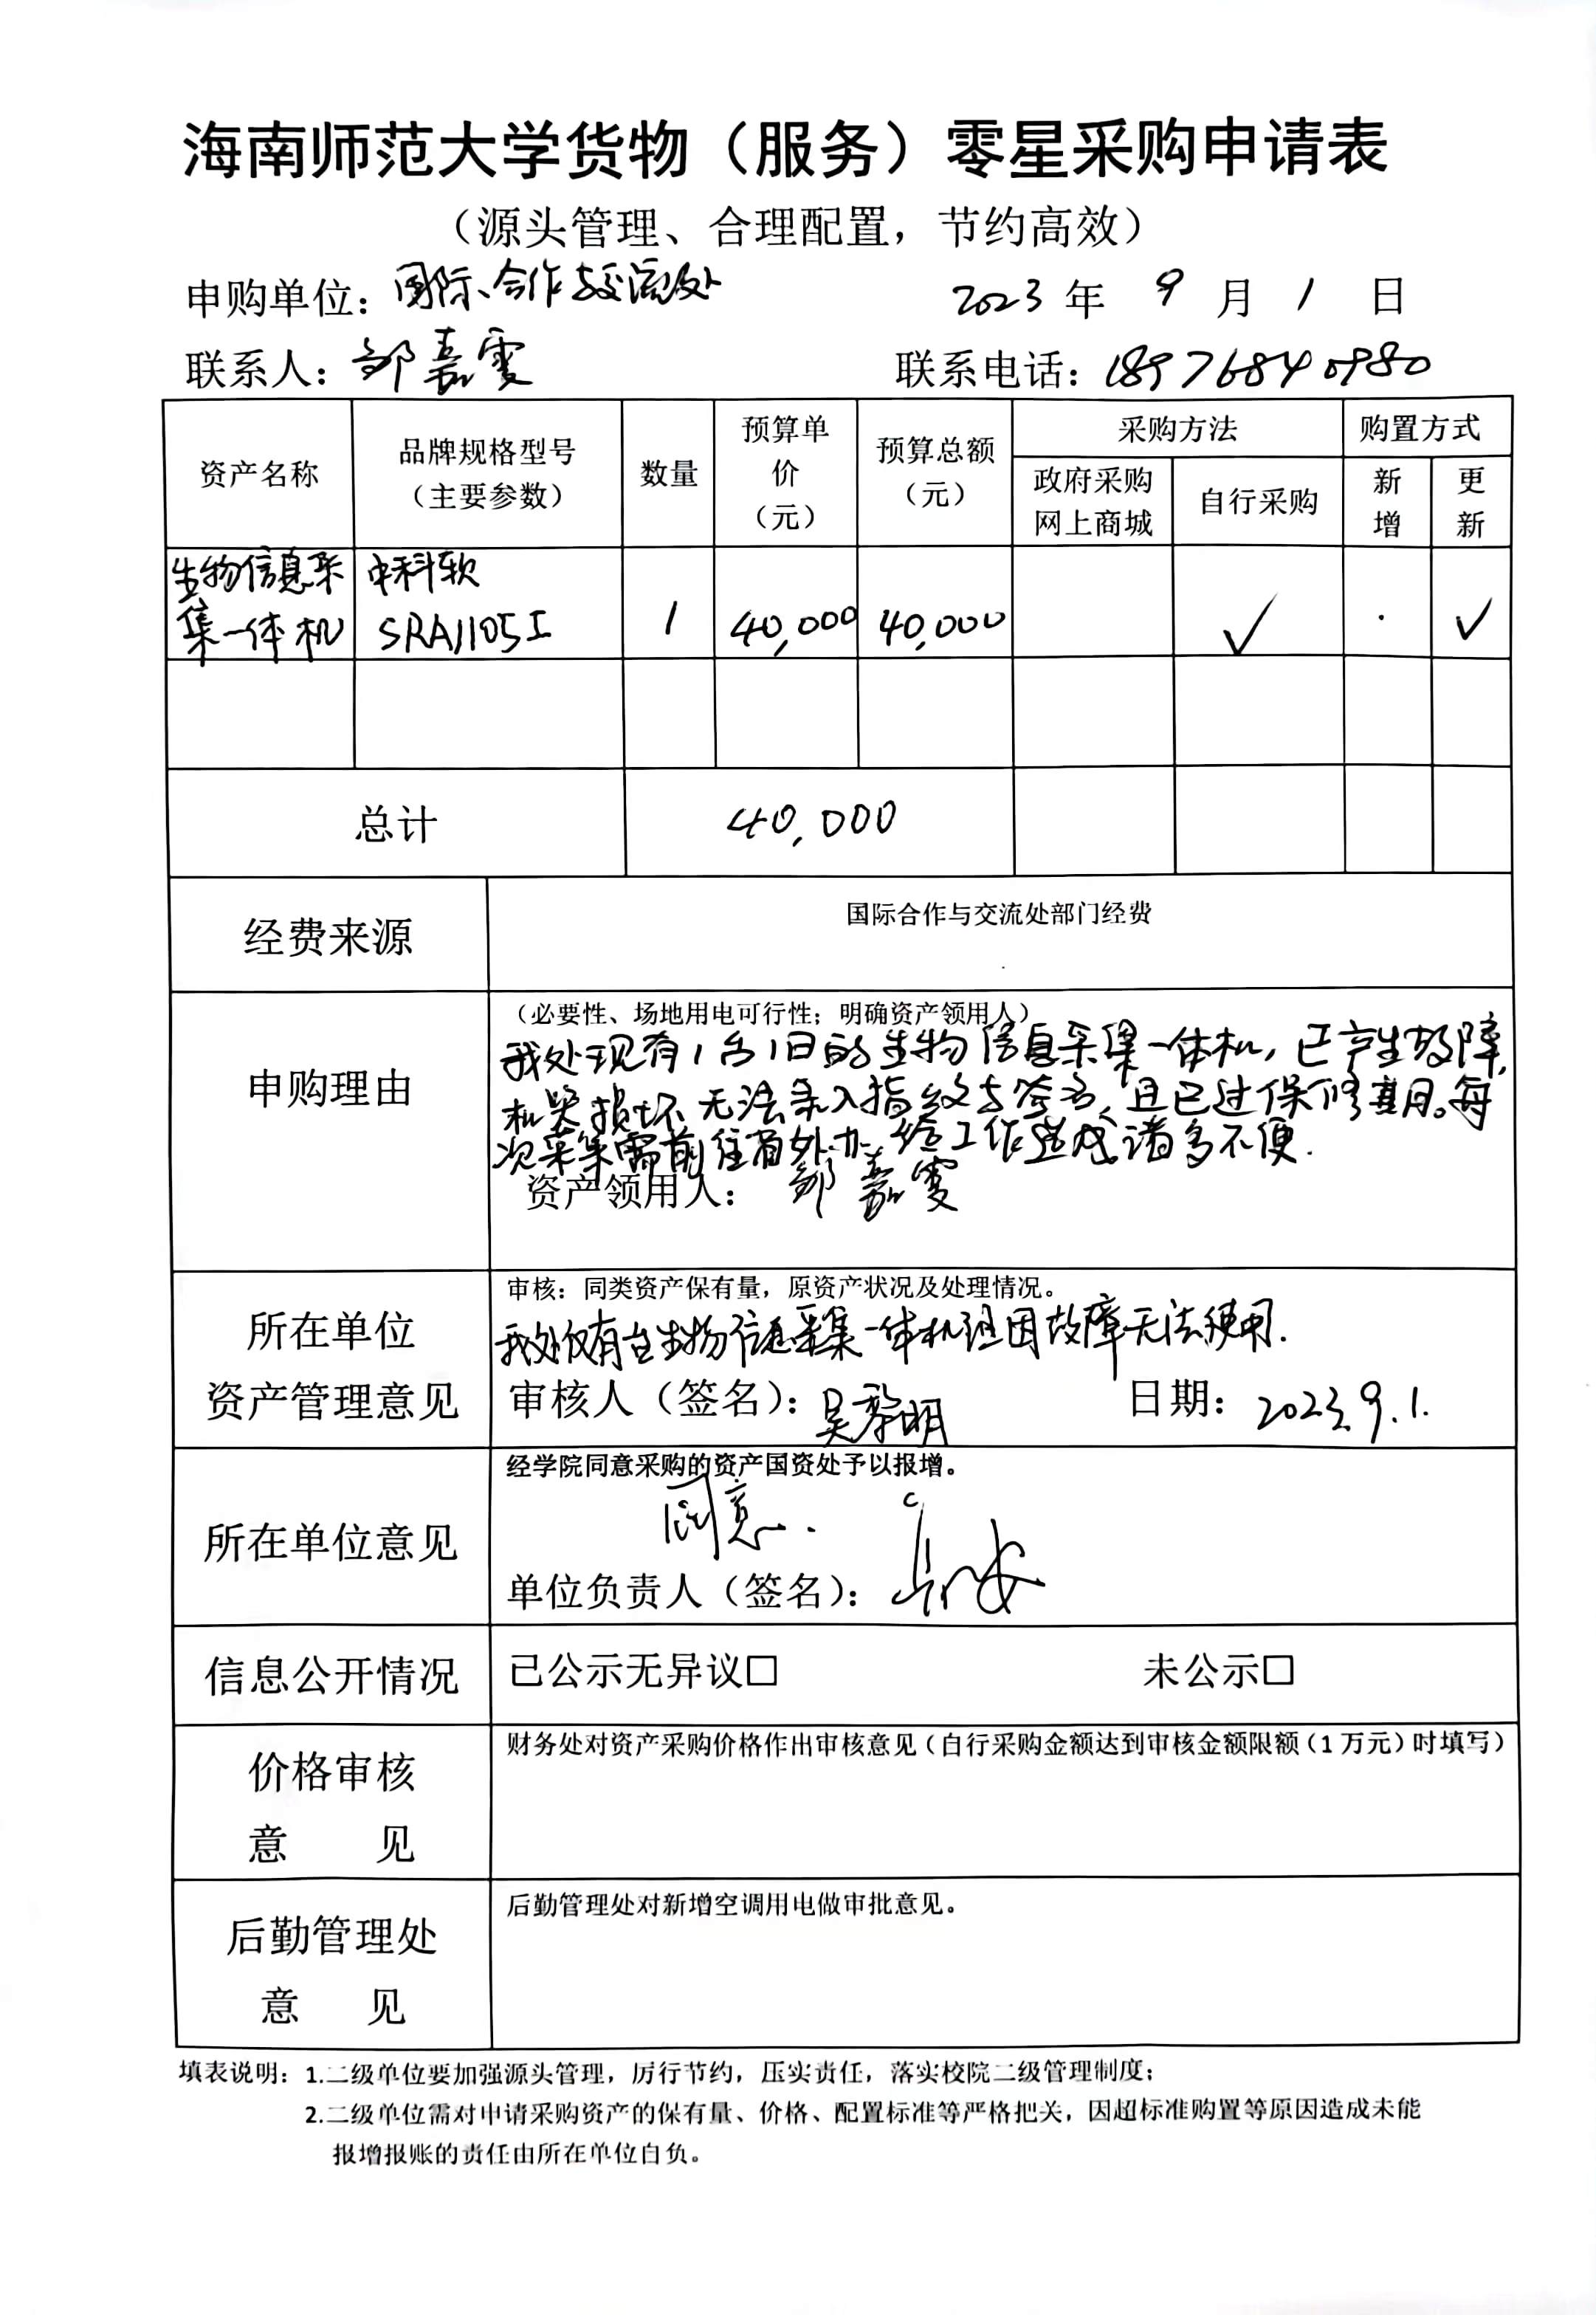 海南师范大学货物（服务）零星采购申请表
（源头管理、合理配置，节约高效）
申购单位：国际合作与交流处 2023 年 9 月 1 日
联系人：邹嘉雯 联系电话：18976840980
资产名称 品牌规格型号（主要参数） 数量 预算单价（元） 预算总额（元） 采购方法 购置方式
政府采购网上商城 自行采购 新增 更新
生物信息采集一体机 中科软 SRA1105I 1 40,000 40,000 ✓ ✓
总计 40,000
经费来源 国际合作与交流处部门经费
申购理由 （必要性、场地用电可行性；明确资产领用人）
我处现有1台旧的生物信息采集一体机，已产生故障，
机器损坏无法录入指纹与签名，且已过保修期。每
次采集需前往省外办，给工作造成诸多不便.
资产领用人：邹嘉雯
所在单位资产管理意见 审核：同类资产保有量，原资产状况及处理情况。
我处仅有台生物信息采集一体机且因故障无法使用.
审核人（签名）：吴黎明 日期：2023.9.1.
所在单位意见 经学院同意采购的资产国资处予以报增。
同意.
单位负责人（签名）：
信息公开情况 已公示无异议□ 未公示□
价格审核意 见 财务处对资产采购价格作出审核意见（自行采购金额达到审核金额限额（1 万元）时填写）
后勤管理处意 见 后勤管理处对新增空调用电做审批意见。
填表说明：1.二级单位要加强源头管理，厉行节约，压实责任，落实校院二级管理制度；
2.二级单位需对申请采购资产的保有量、价格、配置标准等严格把关，因超标准购置等原因造成未能
报增报账的责任由所在单位自负。